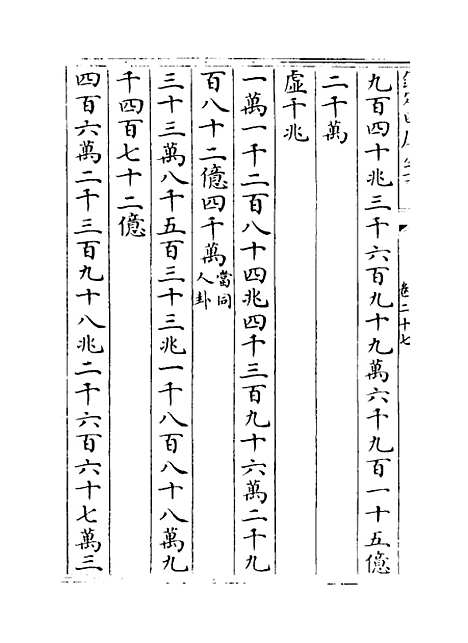 卷二十七
九百四十兆三千六百九十九萬六千九百一十五億
二千萬
虛千兆
一萬一千二百八十四兆四千三百九十六萬二千九
百八十二億四千萬當同人卦
三十三萬八千五百三十三兆一千八百八十八萬九
千四百七十二億
四百六萬二千三百九十八兆二千六百六十七萬三